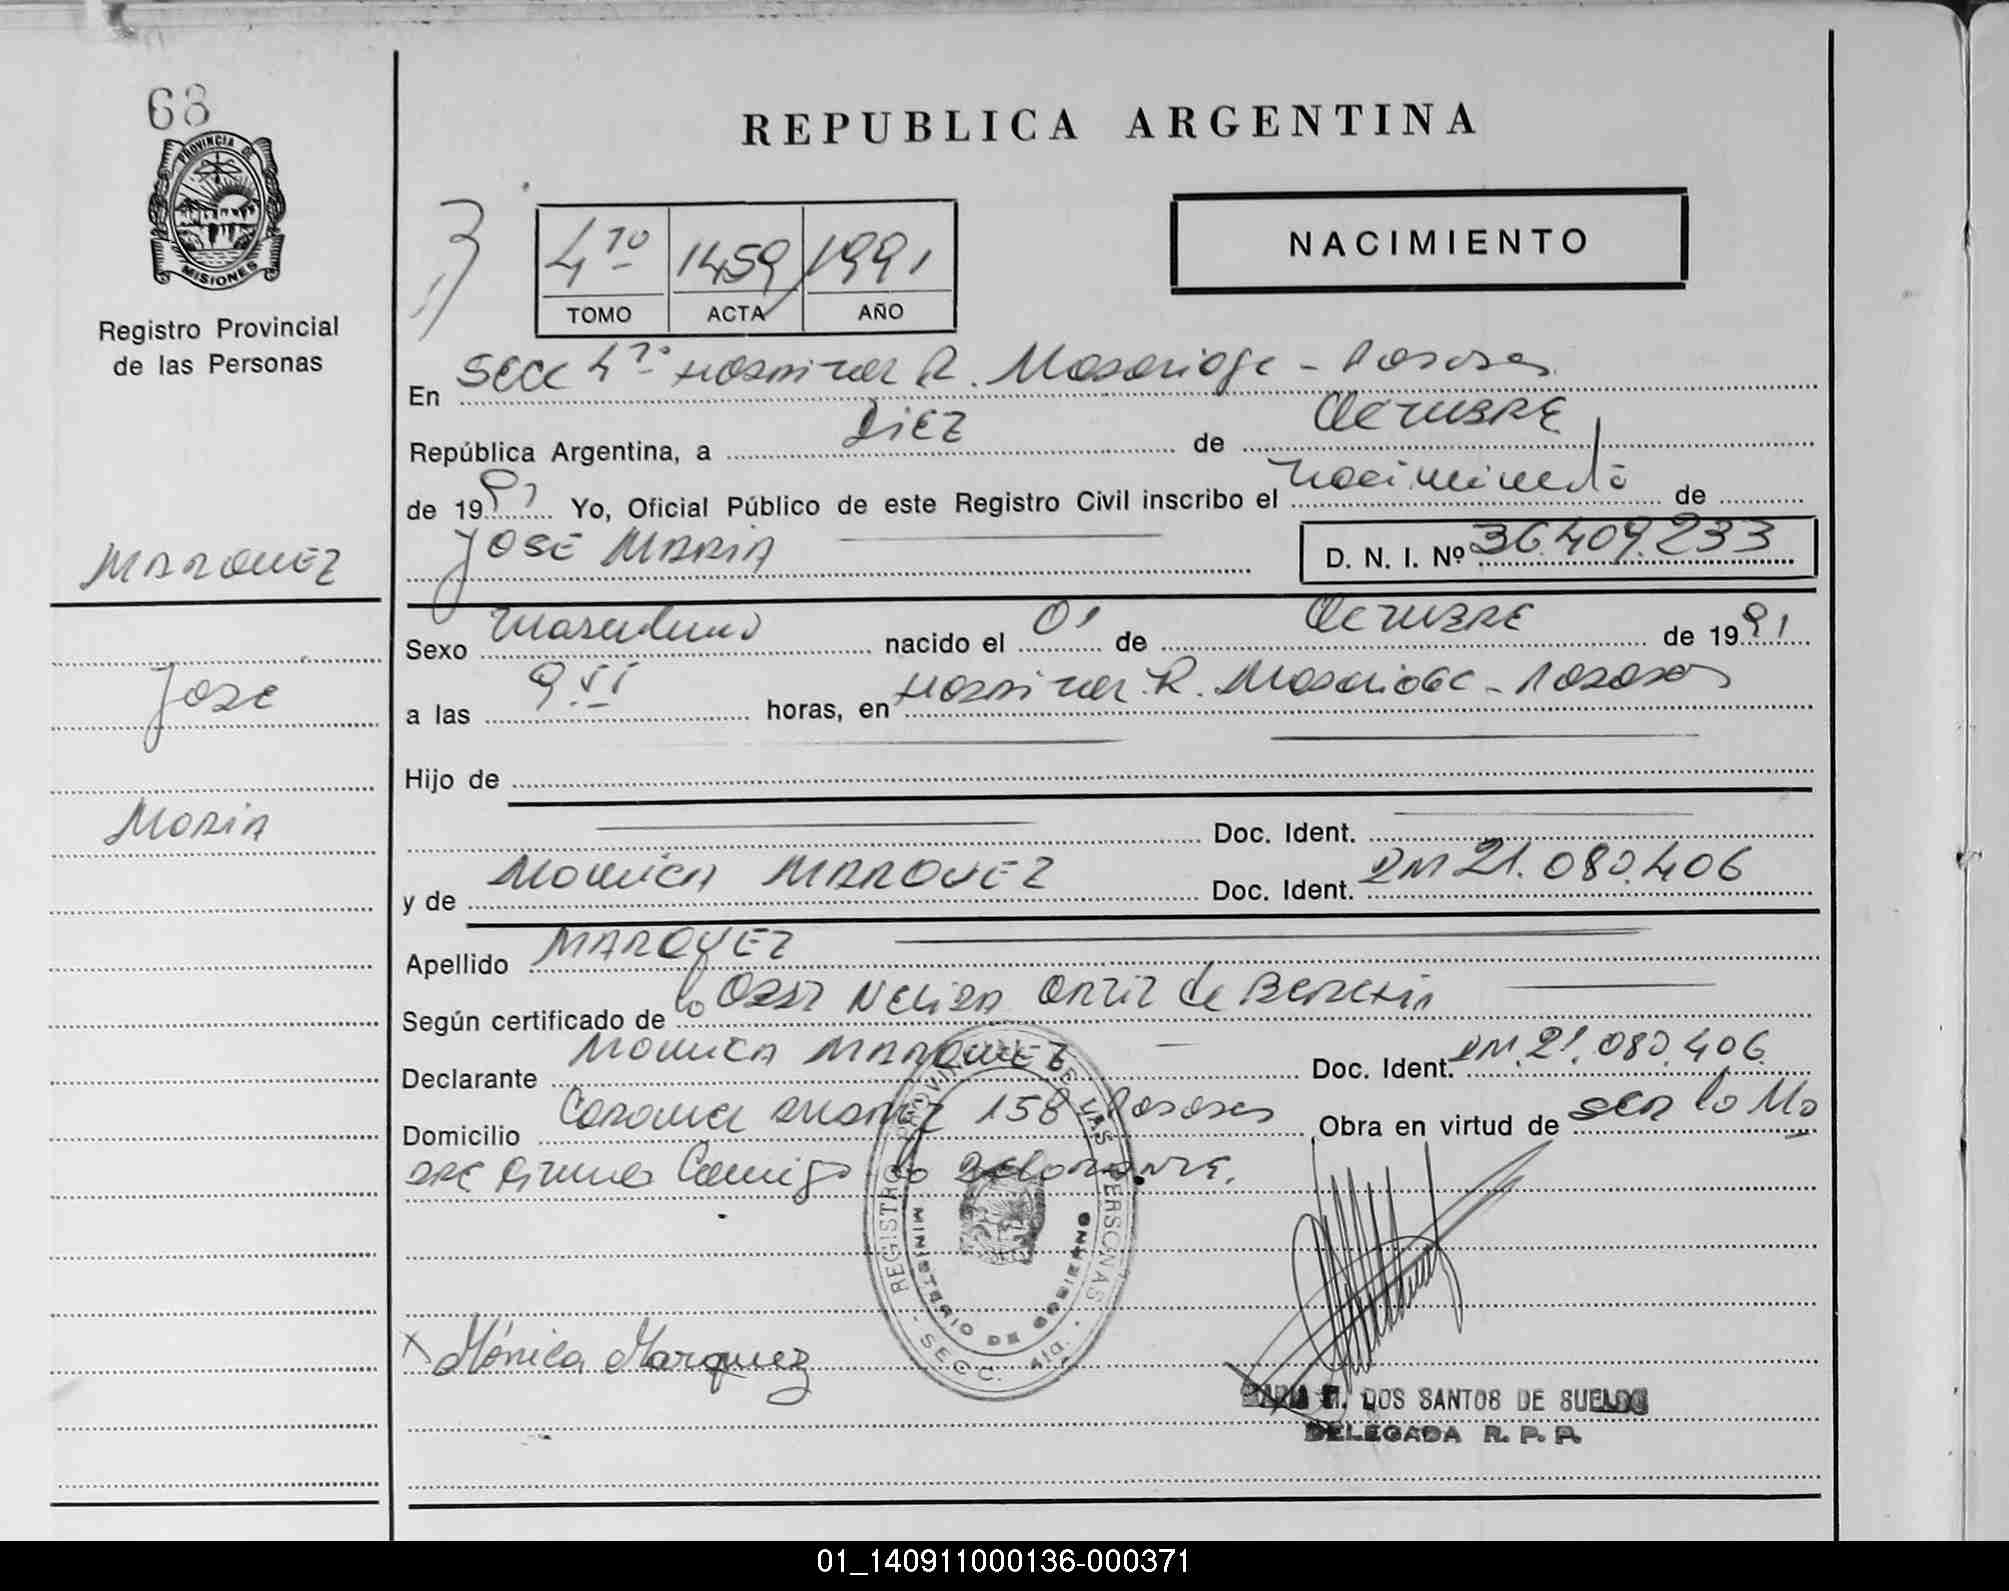 68
REPUBLICA ARGENTINA
PROVINCIA DE MISIONES
Registro Provincial
de las Personas
4to 1459 1991
TOMO ACTA AÑO
NACIMIENTO
En Secc 4ta Hospital R. Madariaga - Posadas
República Argentina, a DIEZ de OCTUBRE
de 1991 Yo, Oficial Público de este Registro Civil inscribo el nacimiento de
JOSE MARIA
D. N. I. Nº 36.409.233
MARQUEZ
Jose
Maria
Sexo masculino nacido el 01 de OCTUBRE de 1991
a las 9 horas, en Hospital R. Madariaga - Posadas
Hijo de
Doc. Ident.
y de Monica MARQUEZ Doc. Ident. DNI 21.080.406
Apellido MARQUEZ
Según certificado de la Obst Nelida Ortiz de
Declarante Monica MARQUEZ Doc. Ident. DNI. 21.080.406
Domicilio Coronel 158 Posadas Obra en virtud de ser la Ma
dre Firma Conmigo la Declarante.
REGISTRO PROVINCIAL DE LAS PERSONAS
MINISTERIO DE GOBIERNO
SECC. 4ta.
x Mónica Marquez
MARIA M. DOS SANTOS DE SUELDO
DELEGADA R. P. P.
01_140911000136-000371